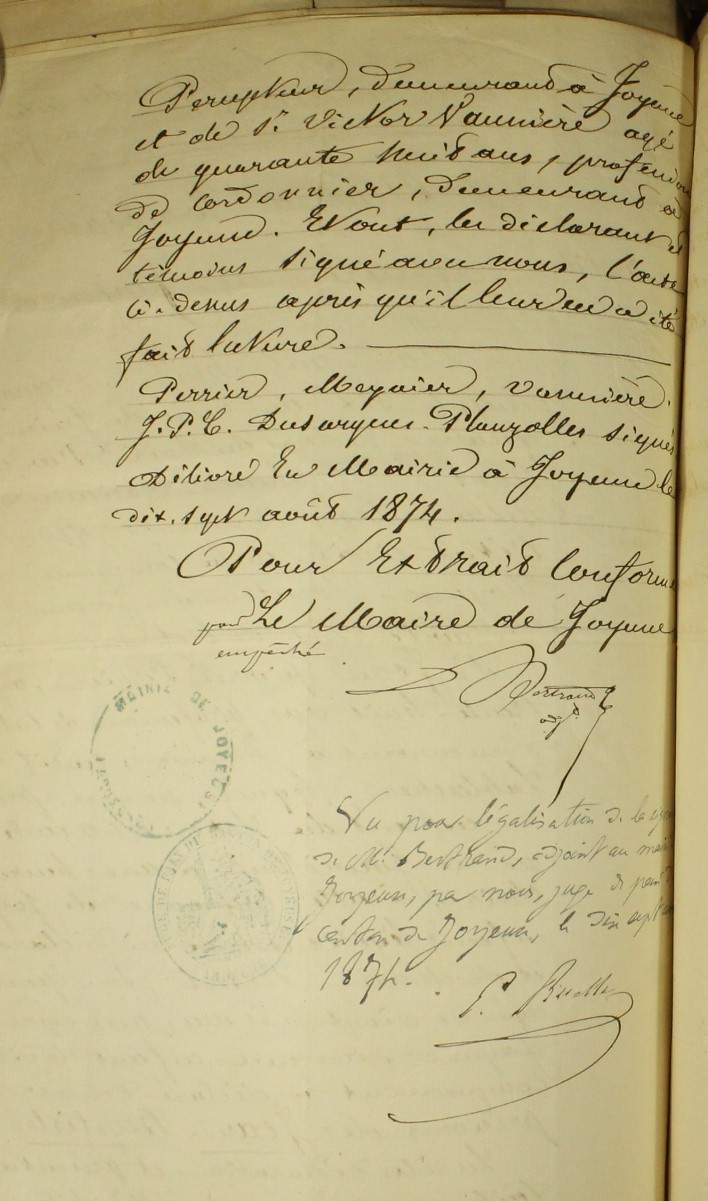 Percepteur, demeurant à Joyeuse
et de Sr. Victor Vannière agé
de quarante huit ans, profession
de Cordonnier, demeurant à
Joyeuse. Et ont, les déclarant et
témoins signé avec nous, l'acte
ci-dessus après qu'il leur en a été
fait lecture.
Perrier, Meynier, Vannière.
J. P. C. Dusargues-Planzolles signés
Délivré En Mairie à Joyeuse le
dix-sept août 1874.
Pour Extrait Conforme
pour Le Maire de Joyeuse
empêché
Bertrand
adj
MAIRIE DE JOYEUSE
Vu pour légalisation de la
de Mr Bertrand, adjoint au maire
Joyeuse, par nous, juge de paix
canton de Joyeuse, le dix sept
1874.